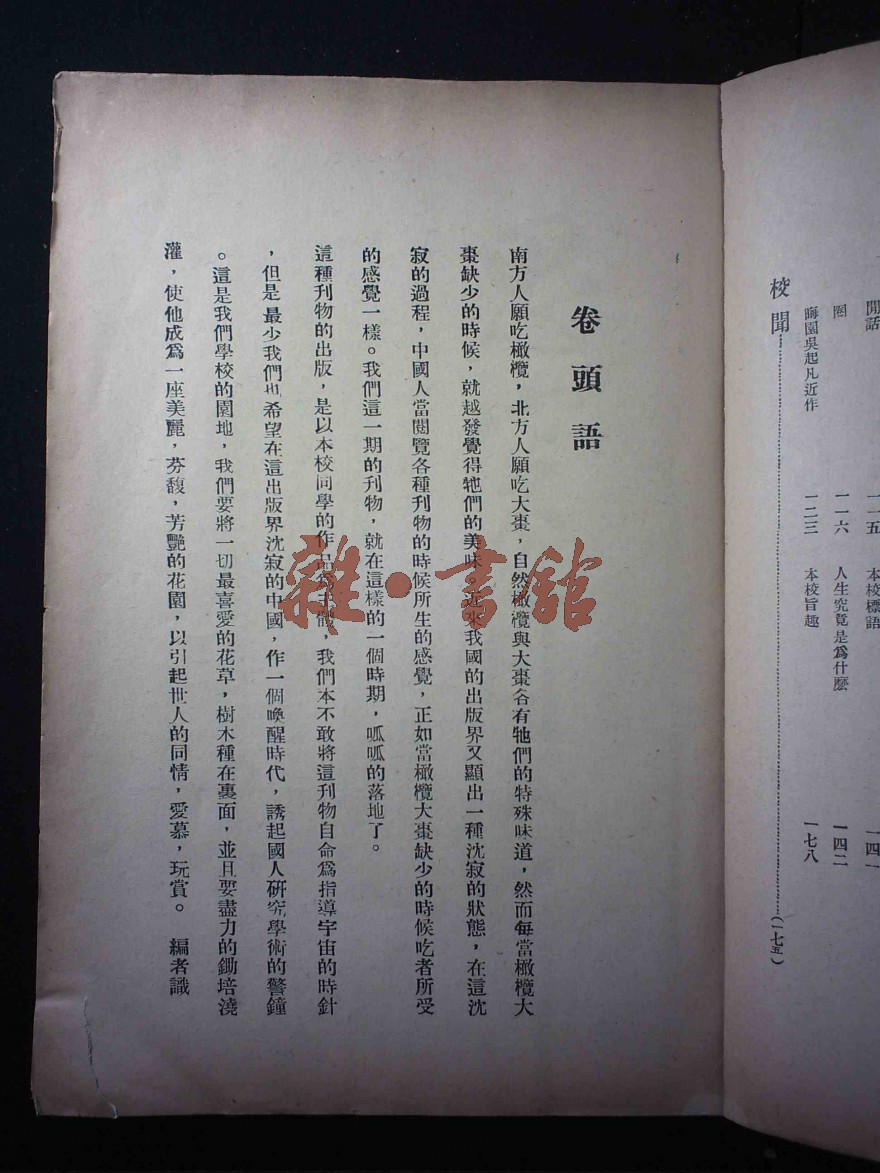 閒話
一一五
本校標語
一四一
圈
一一六
人生究竟是爲什麽
一四二
晦園吳起凡近作
一二三
本校旨趣
一七八
校聞
(一七五)
卷頭語
南方人願吃橄欖，北方人願吃大棗，自然橄欖與大棗各有牠們的特殊味道，然而每當橄欖大
棗缺少的時候，就越發覺得牠們的美味，近來我國的出版界又顯出一種沈寂的狀態，在這沈
寂的過程，中國人當閱覽各種刊物的時候所生的感覺，正如當橄欖大棗缺少的時候吃者所受
的感覺一樣。我們這一期的刊物，就在這樣的一個時期，呱呱的落地了。
這種刊物的出版，是以本校同學的作品爲主體，我們本不敢將這刊物自命爲指導宇宙的時針
，但是最少我們也希望在這出版界沈寂的中國，作一個喚醒時代，誘起國人研究學術的警鐘
。這是我們學校的園地，我們要將一切最喜愛的花草，樹木種在裏面，並且要盡力的鋤培澆
灌，使他成爲一座美麗，芬馥，芳艷的花園，以引起世人的同情，愛慕，玩賞。　編者識
雜·書舘